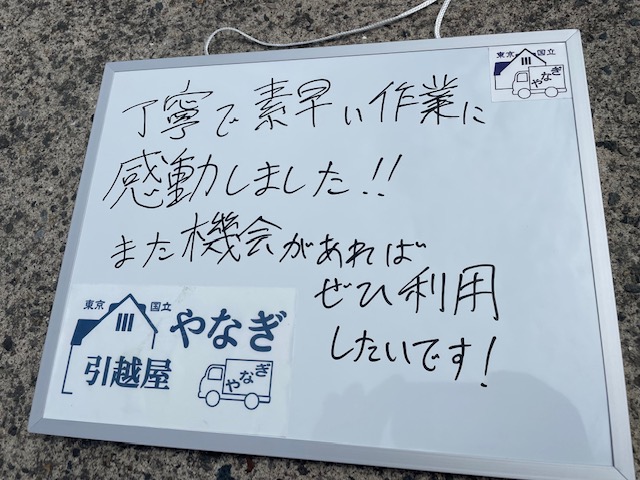 東京 国立
やなぎ
丁寧で素早い作業に
感動しました!!
また機会があれば
ぜひ利用
したいです!
東京 国立
やなぎ
引越屋
やなぎ